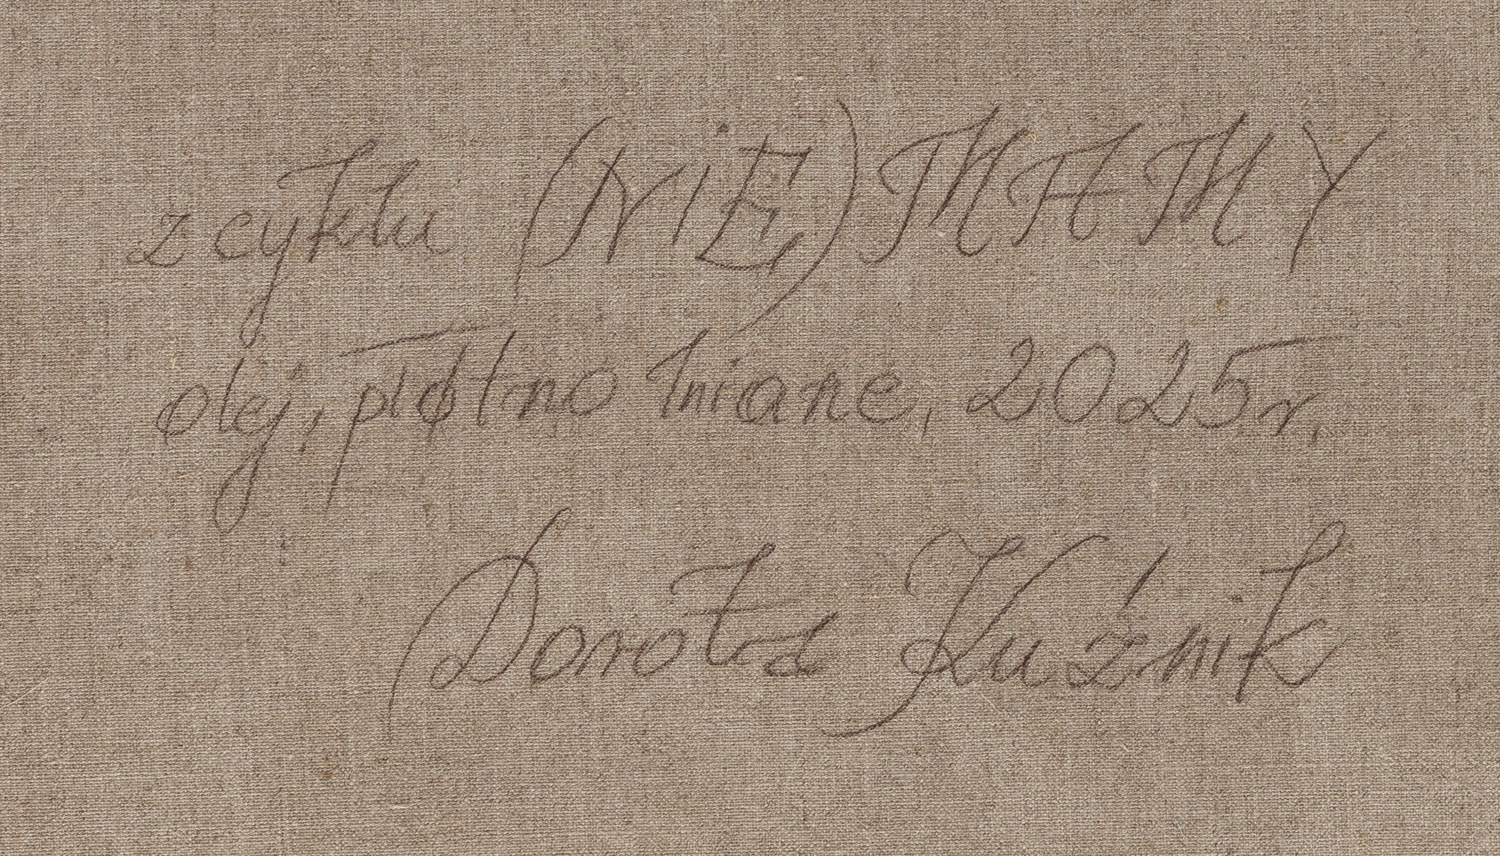 z cyklu (NIE) MAMY
olej, płótno lniane, 2025r.
Dorota Kuźnik